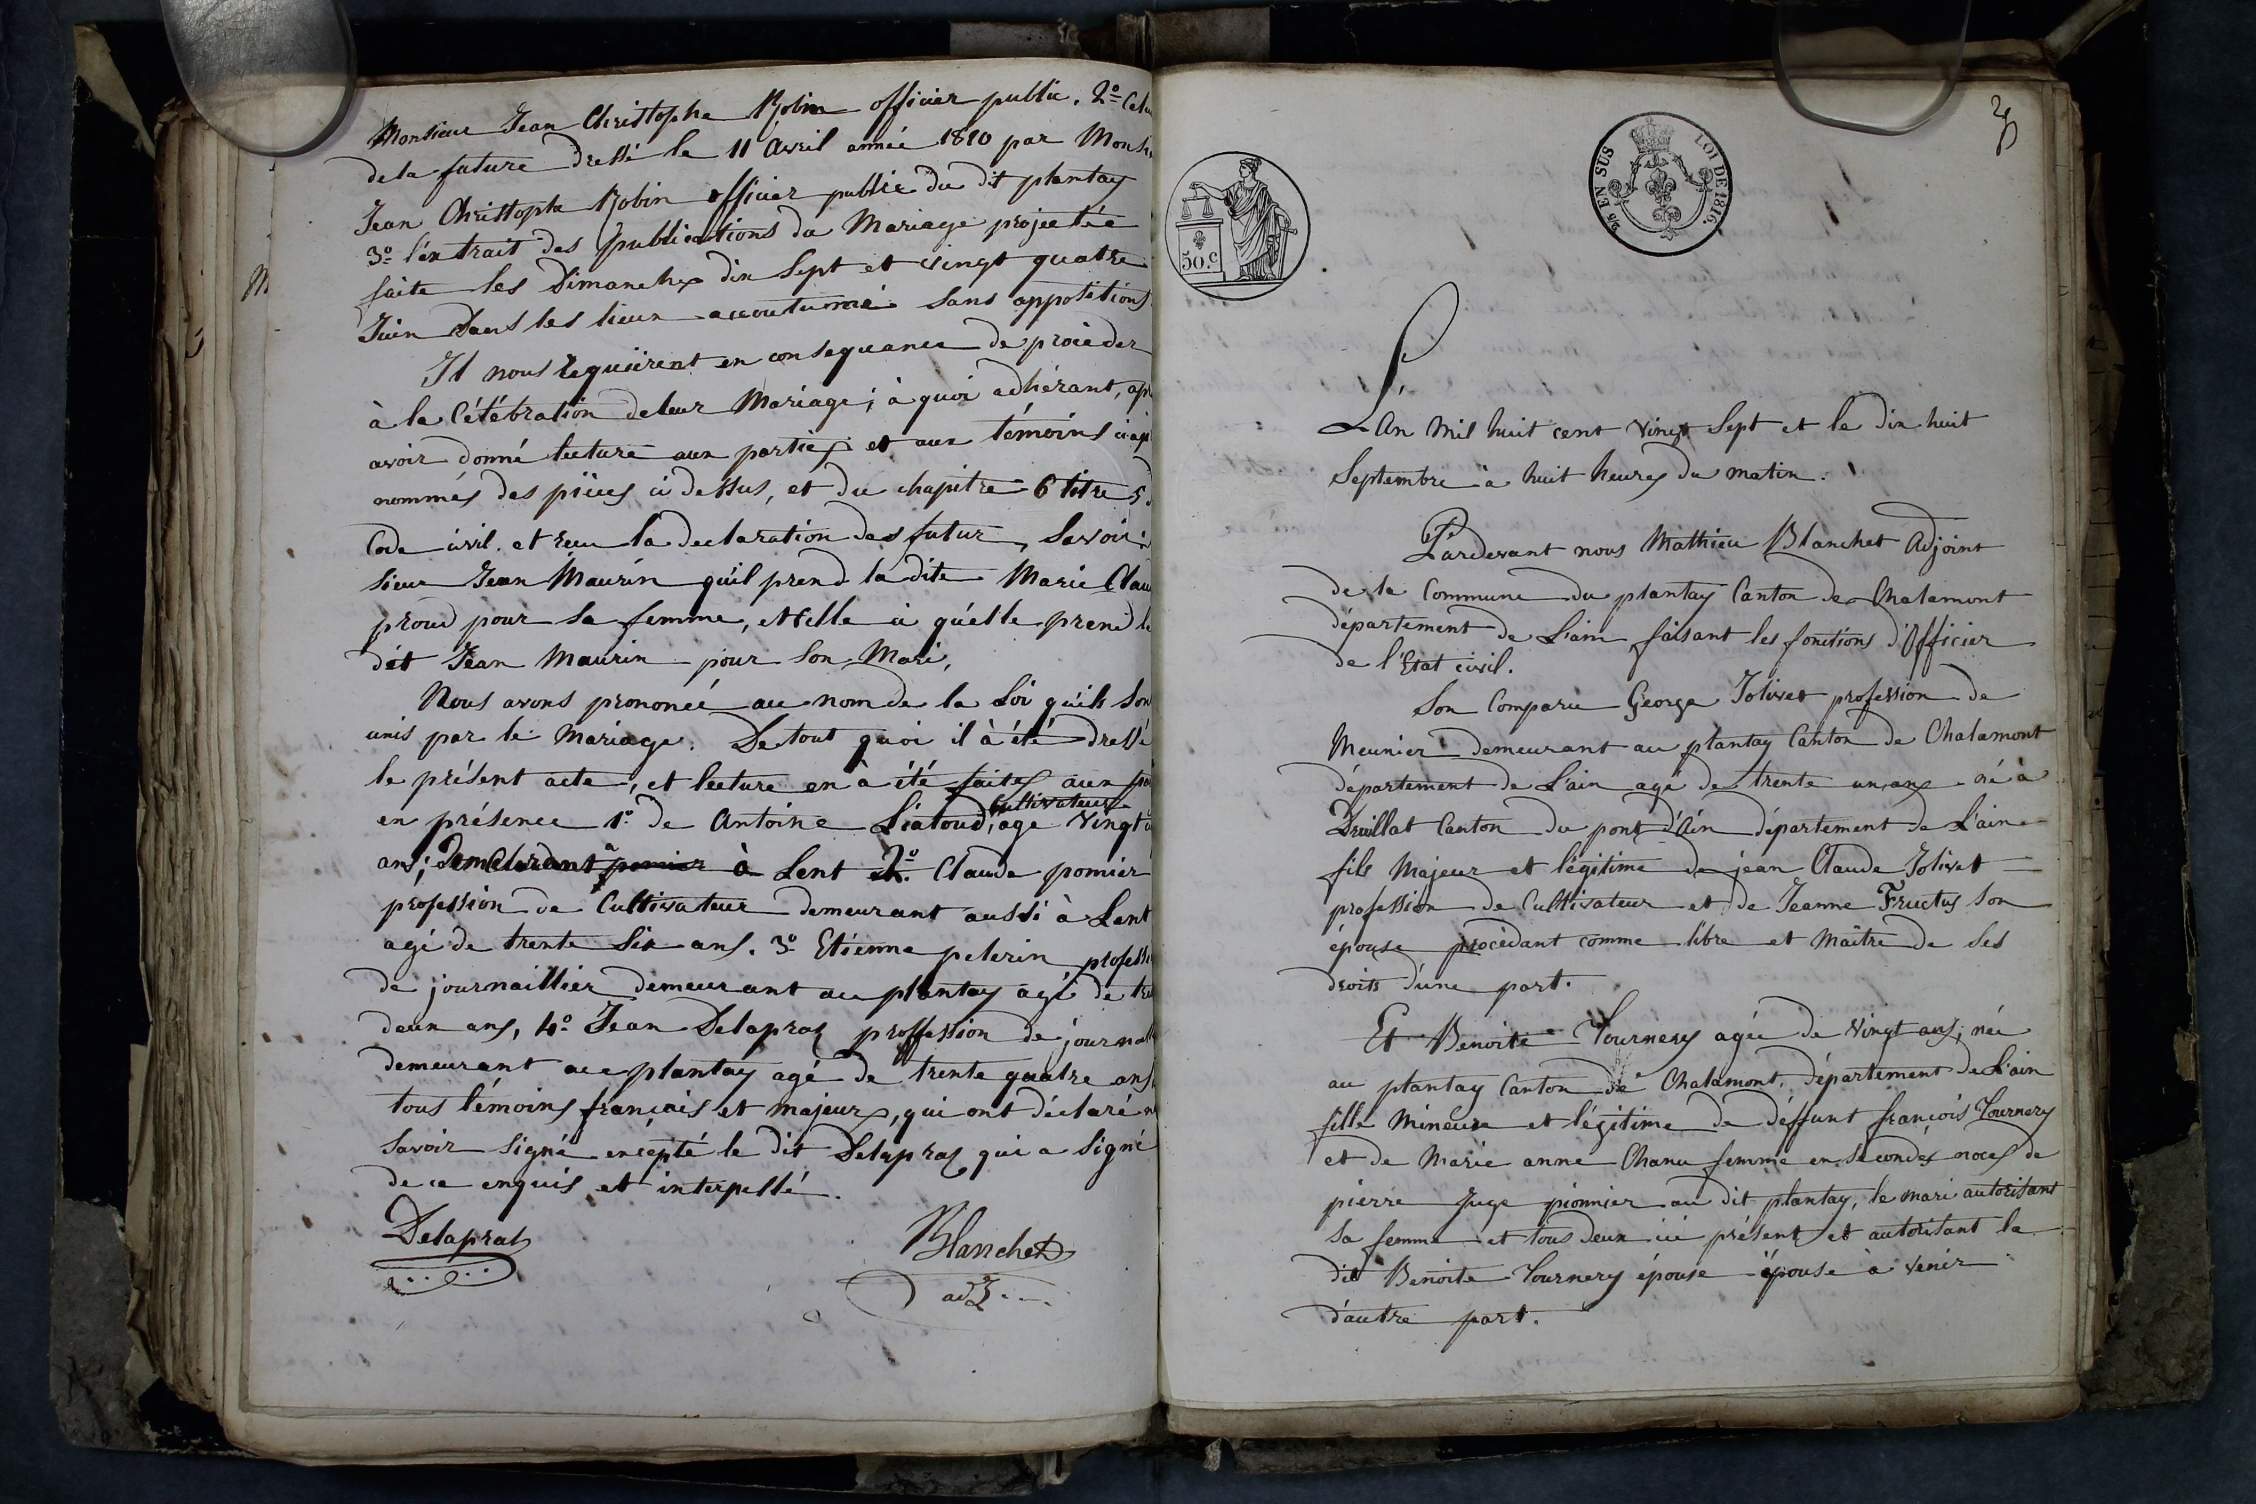 Monsieur Jean Christophe Robin officier public. 2º Celui
de la future dressé le 11 avril année 1810 par Monsi
Jean Christophe Robin officier public du dit plantay
3º l'extrait des publications du Mariage projectée
faite les Dimanches dix sept et vingt quatre
Juin dans les lieux accoutumé sans oppositions
Il nous requièrent en consequance de procéder
à la Célébration de leur Mariage; à quoi adhérant, ap
avoir donné lecture aux parties et aux témoins ci ap
nommés des pièces ci dessus, et du chapitre 6 titre 5 d
Code civil. et reçu la declaration des futur, Savoir:
sieur Jean Maurin quil prend la dite Marie Clau
proud pour sa femme, et elle à quélle prend le
dit Jean Maurin pour son Mari,
Nous avons prononcé au nom de la Loi quils son
unis par le Mariage. De tout quoi il à été dressé
le présent acte, et lecture en à été faites aux pa
Cultivateur
en présence 1º de Antoine Liatoud, age vingt
ans; Demeurant à Lent et 2º. Claude pomier
profession de Cultivateur demeurant aussi à Lent
agé de trente Six ans. 3º Etienne pelerin professi
de journaillier demeurant au plantay agé de tre
deux ans, 4º Jean Delapraz proffession de journal
demeurant au plantay agé de trente quatre ans
tous témoins français et majeurs, qui ont déclaré n
savoir signé excépté le dit Delapraz qui a signé
de ce enquis et interpellé.
Delaprat
Blanchet
adj
50.C
2/5 EN SUS
LOI DE 1816.
L'An Mil huit cent vingt Sept et le dix huit
Septembre à huit heures du matin.
Pardevant nous Mathieu Blanchet Adjoint
de la Commune du plantay Canton de Chalamont
département de L'ain, faisant les fonctions d'Officier
de l'Etat civil.
Son Comparu George Jolivet profession de
Meunier demeurant au plantay Canton de Chalamont
département de L'ain agé de trente un ans né à
Druillat Canton du pont d'Ain département de L'ain
fils Majeur et légitime de jean Claude Jolivet
profession de Cultivateur et de Jeanne Fructus son
épouse procèdant comme libre et Maître de Ses
droits d'une part.
Et Benoite Tournery agée de vingt ans; née
au plantay Canton de Chalamont, département de L'ain
fille Mineure et légitime de déffunt françois Tournery
et de Marie anne Chanu femme en secondes noces de
pierre Juge pionnier au dit plantay, le mari autorisant
sa femme et tous deux ici présent et autorisant la
dit Benoite Tournery épouse épouse à venir
d'autre part.